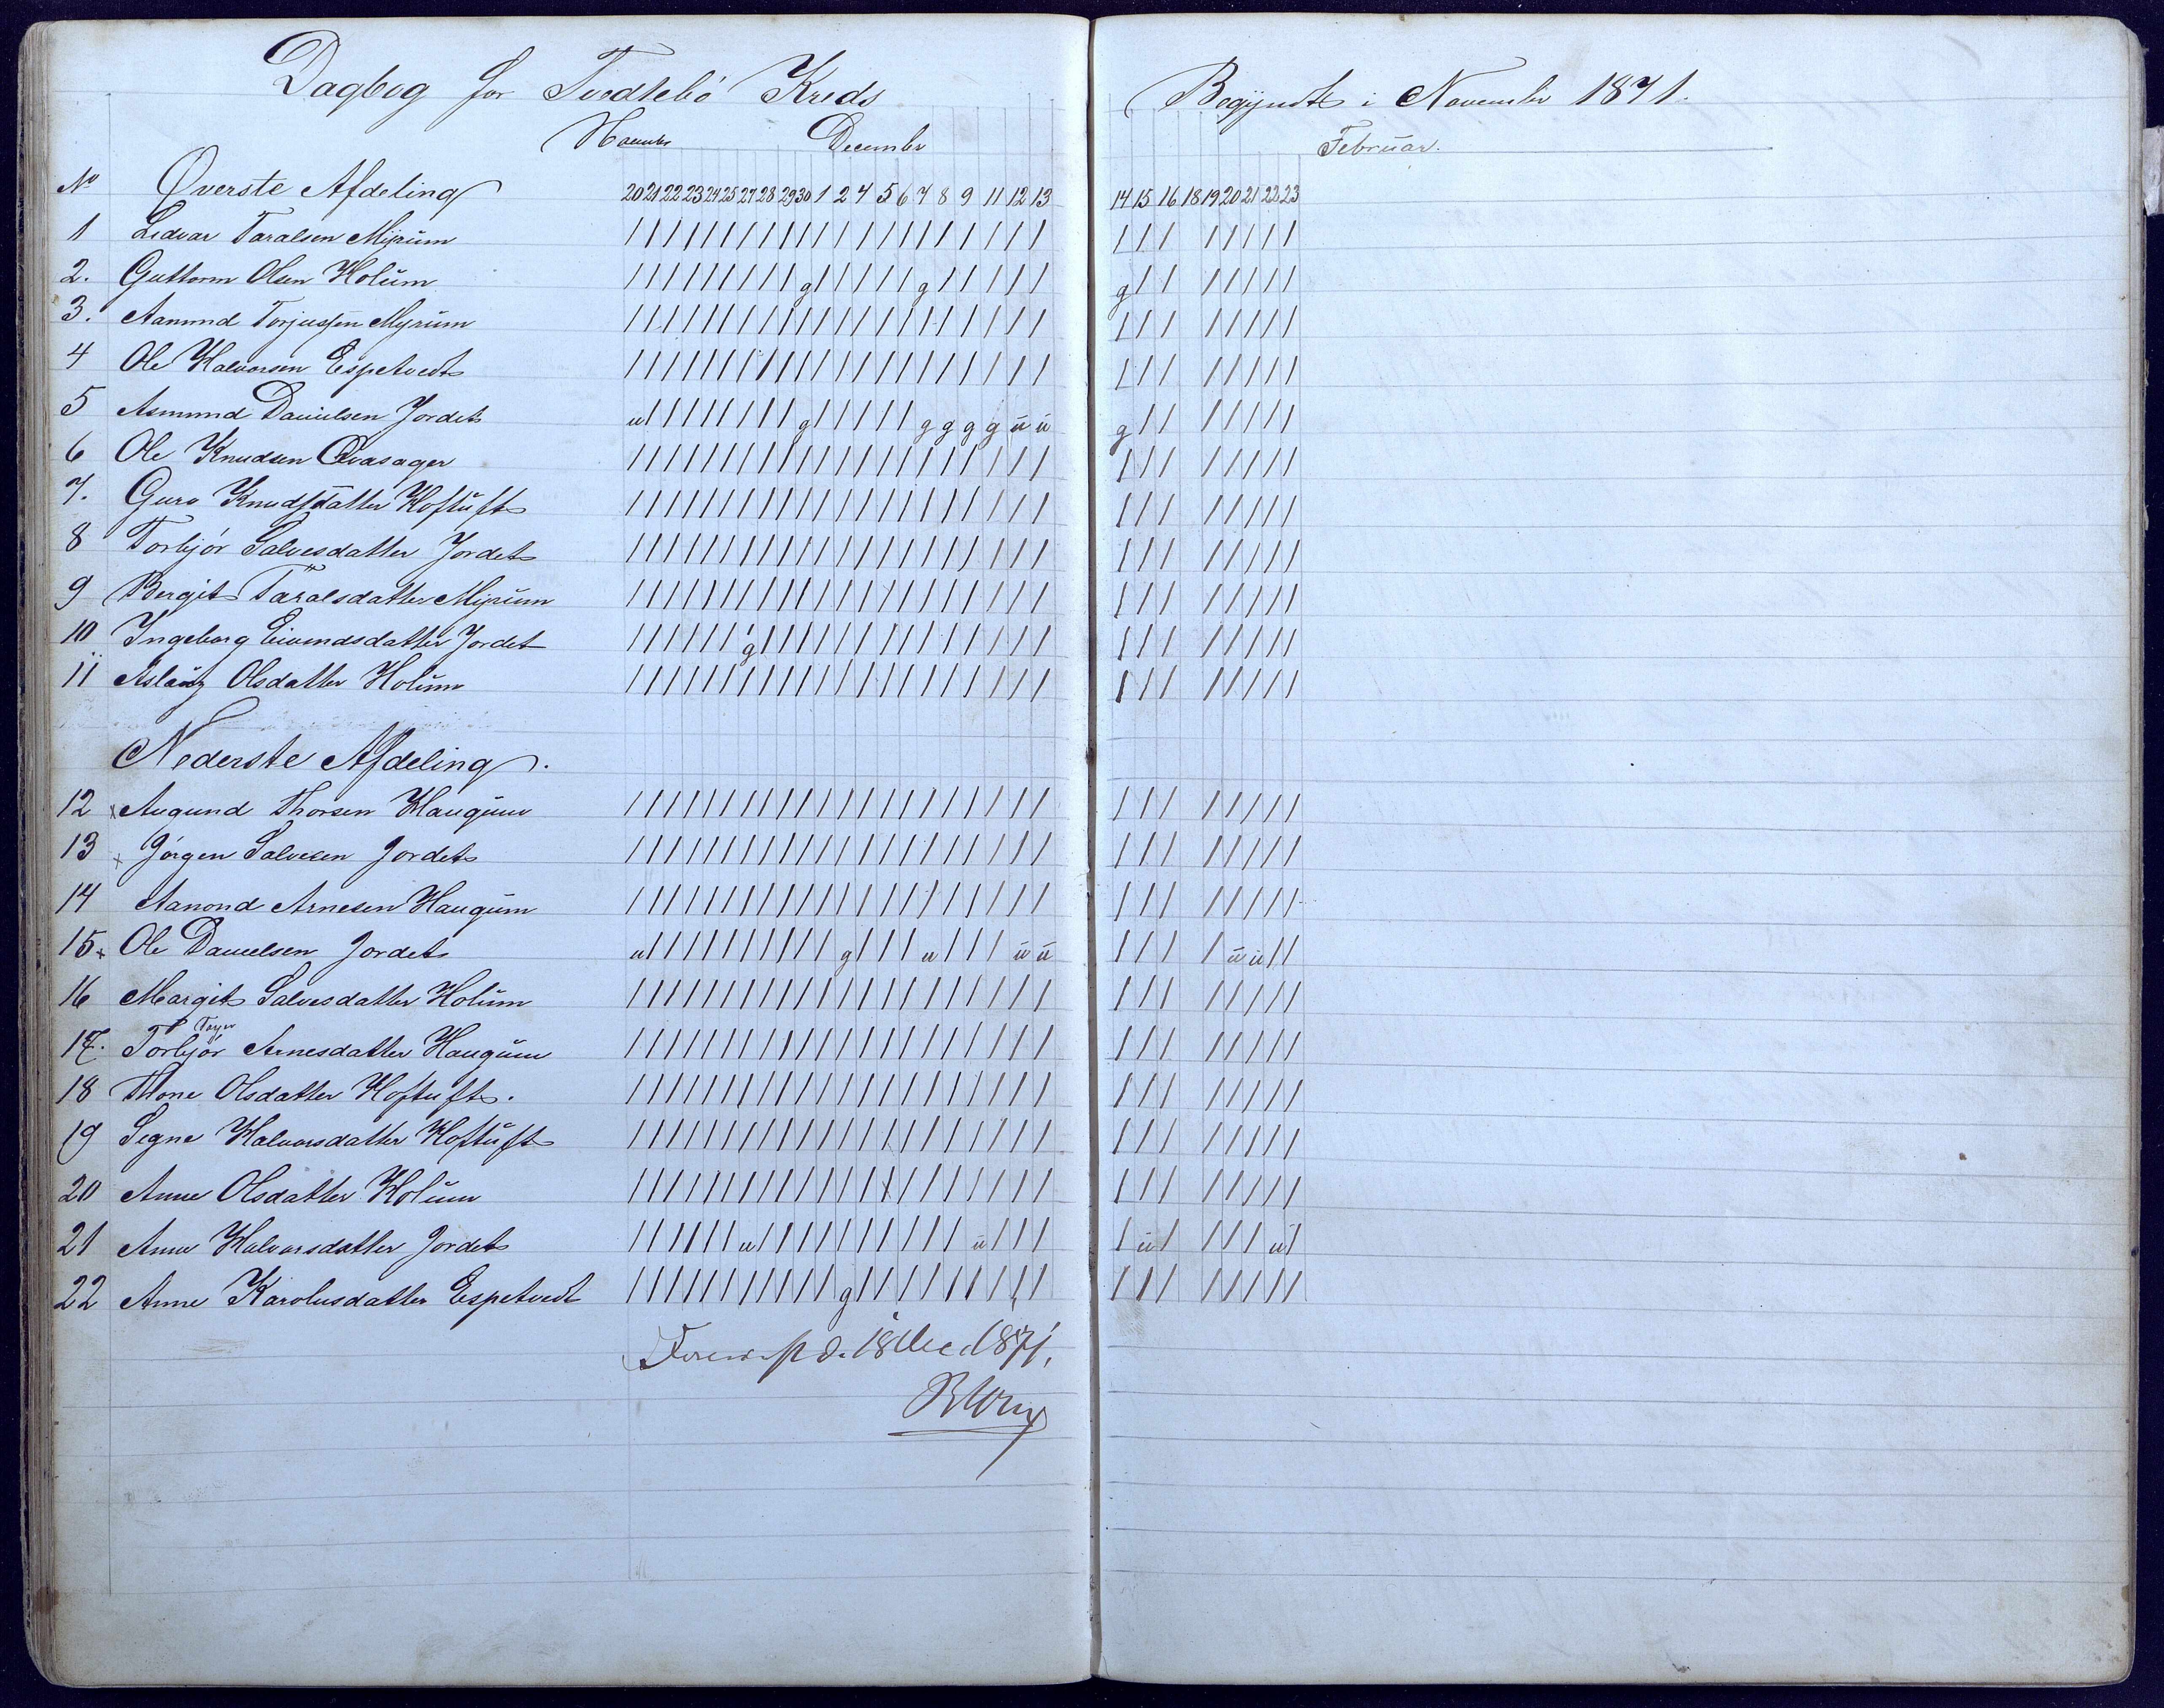 Dagbog for Tvedtebö Kreds
Begyndt i November 1871.
November December
Februar.
No Øverste Afdeling 20 21 22 23 24 25 27 28 29 30 1 2 4 5 6 7 8 9 11 12 13 14 15 16 18 19 20 21 22 23
1 Ledvar Taralsen Myrum / / / / / / / / / / / / / / / / / / / / / / / / / / / / /
2. Guttorm Olsen Holum / / / / / / / / / g / / / / / g / / / / / g / / / / / / /
3. Aanund Torjussen Myrum / / / / / / / / / / / / / / / / / / / / / / / / / / / / /
4 Ole Halvorsen Espetvedt / / / / / / / / / / / / / / / / / / / / / / / / / / / / /
5 Asmund Danielsen Jordet u / / / / / / / / g / / / / / g g g g u u g / / / / / / /
6 Ole Knudsen Qvasager / / / / / / / / / / / / / / / / / / / / / / / / / / / / /
7. Guro Knudsdatter Hoftuft / / / / / / / / / / / / / / / / / / / / / / / / / / / / /
8 Torbjör Salvesdatter Jordet / / / / / / / / / / / / / / / / / / / / / / / / / / / / /
9 Bergit Taralsdatter Myrum / / / / / / / / / / / / / / / / / / / / / / / / / / / / /
10 Ingeborg Eivindsdatter Jordet / / / / / / g / / / / / / / / / / / / / / / / / / / / / /
11 Aslaug Olsdatter Holum / / / / / / / / / / / / / / / / / / / / / / / / / / / / /
Nederste Afdeling.
12 x Augund Thorsen Haugum / / / / / / / / / / / / / / / / / / / / / / / / / / / / /
13 x Jörgen Salvesen Jordet / / / / / / / / / / / / / / / / / / / / / / / / / / / / /
14 Aanond Arnesen Haugum / / / / / / / / / / / / / / / / / / / / / / / / / / / / /
15 x Ole Danielsen Jordet u / / / / / / / / / / g / / / u / / / u u / / / / u u / /
16 Margit Salvesdatter Holum / / / / / / / / / / / / / / / / / / / / / / / / / / / / /
17. Torbjör Arnesdatter Haugum / / / / / / / / / / / / / / / / / / / / / / / / / / / / /
18 Thone Olsdatter Hoftuft. / / / / / / / / / / / / / / / / / / / / / / / / / / / / /
19 Segne Halvorsdatter Hoftuft / / / / / / / / / / / / / / / / / / / / / / / / / / / / /
20 Anne Olsdatter Holum / / / / / / / / / / / / / / / / / / / / / / / / / / / / /
21 Anne Halvorsdatter Jordet / / / / / / u / / / / / / / / / / u / / / / u / / / / u /
22 Anne Karolusdatter Espetvedt / / / / / / / / / / / g / / / / / / / / / / / / / / / / /
d. 18 Dec 1871,